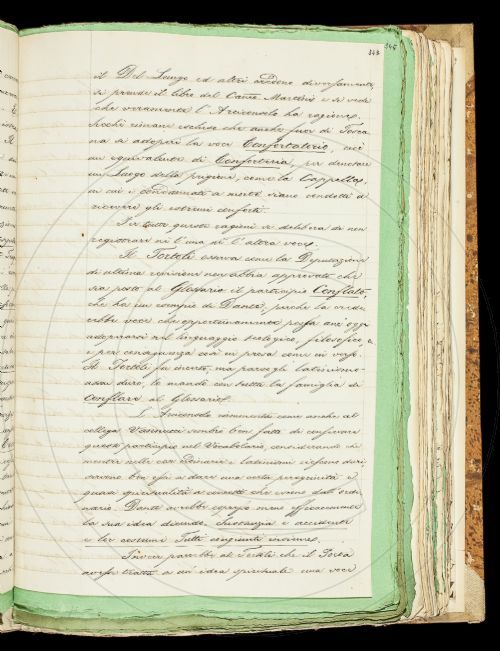 343 345
il Del Lungo ed altri credono diversamente,
si prende il libro del Conte Martini e si vede
che veramente l'Arciconsolo ha ragione,
poichè rimane escluso che anche fuor di Tosca
na si adoperi la voce Confortatorio, cioè
un equivalente di Conforteria, per denotare
un Luogo della prigione, come la Cappella,
in cui i condannati a morte siano condotti a
ricevere gli estremi conforti.
Per tutte queste ragioni si delibera di non
registrare nè l'una nè l'altra voce.
Il Tortoli osserva come la Deputazione
di ultima revisione non abbia approvato che
sia posto al Glossario il participio Conflato,
che ha un esempio di Dante, parche la crede
rebbe voce che opportunamente possa anc' oggi
adoprarsi nel linguaggio teologico, filosofico, e
e per conseguenza così in prosa come in verso.
Il Tortoli fu incerto, ma parsogli latinismo
assai duro, lo mandò con tutta la famiglia di
Conflare al Glossario.
L'Arciconsolo rammenta come anche al
collega Vannucci sembrò ben fatto di conservare
questo participio nel Vocabolario, considerando che
mentre nelle cose ordinarie i latinismi riescono duri,
servono ben essi a dare una certa peregrinità e
quasi spiritualità a concetti che escono dall'ordi
nario. Dante avrebbe espresso meno efficacemente
la sua idea dicendo, Sustanzia e accidenti
e lor costumi Tutti congiunti insieme.
Invece parrebbe al Tortoli che il Poeta
avesse tratta a un' idea spirituale una voce